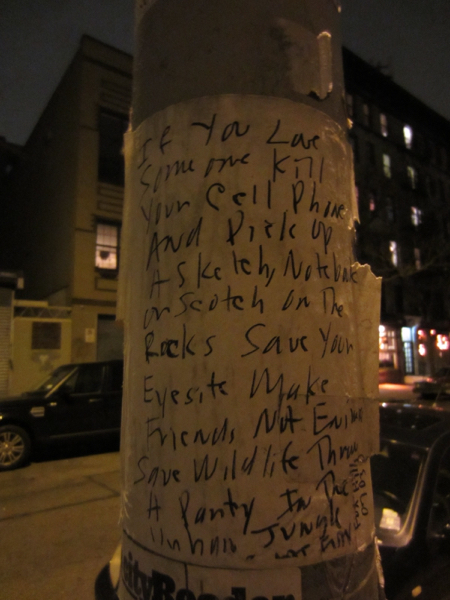 If You Love
Someone Kill
Your Cell Phone
And Pick Up
A Sketch, Notebook
or Scotch On The
Rocks Save Your
Eyesite Make
Friends Not Enimes
Save Wildlife Throw
A Party In The
Jungle
cityReader